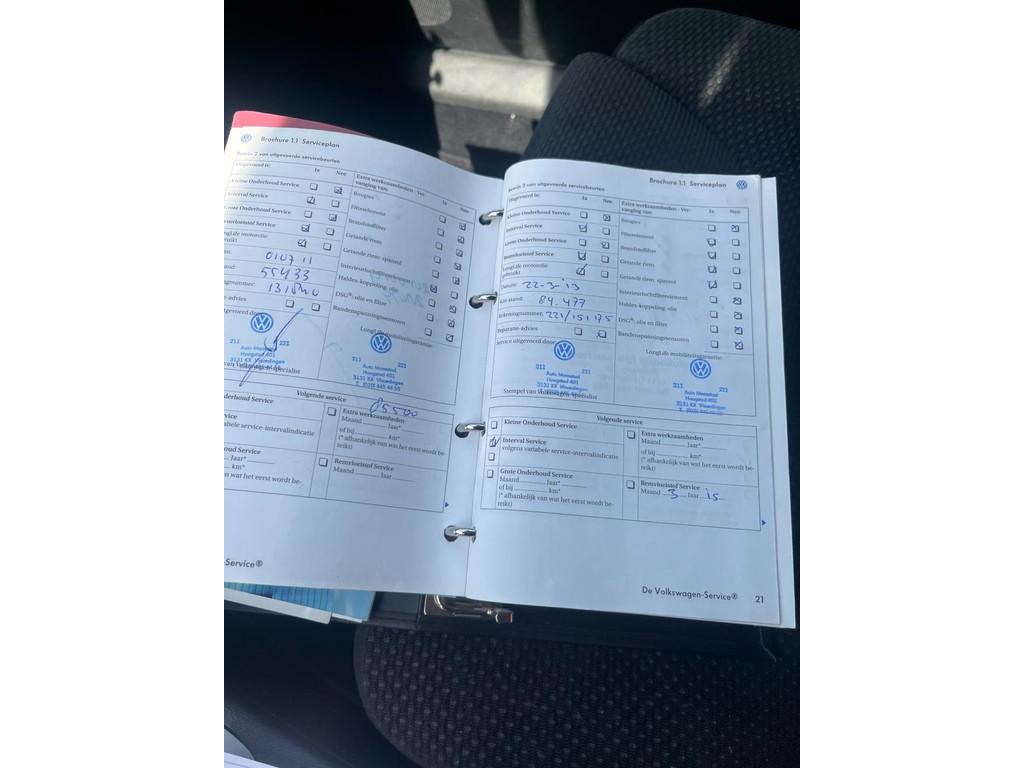 Brochure 1.1 Serviceplan
Bewijs 2 van uitgevoerde servicebeurten
Uitgevoerd is: Ja Nee
Kleine Onderhoud Service
Interval Service
Grote Onderhoud Service
Remvloeistof Service
LongLife motorolie
gebruikt
0107 11
55433
Reparatie-advies
Extra werkzaamheden - Ver-
vanging van: Ja Nee
Bougies
Filterelement
Brandstoffilter
Getande riem
Getande riem: spanrol
Interieurluchtfilterelement
Haldex-koppeling: olie
DSG®: olie en filter
Bandenspanningssensoren
LongLife mobiliteitsgarantie
211 221
Auto Maasstad
Hoogstad 401
3131 KX Vlaardingen
311 221
Auto Maasstad
Hoogstad 401
3131 KX Vlaardingen
van Volkswagen-specialist
Volgende service
85500
Onderhoud Service
vice
abele service-intervalindicatie
houd Service
Jaar*
km*
an wat het eerst wordt be-
Extra werkzaamheden
Maand Jaar*
of bij km*
(* afhankelijk van wat het eerst wordt be-
reikt)
Remvloeistof Service
Maand Jaar
-Service®
Brochure 1.1 Serviceplan
Bewijs 3 van uitgevoerde servicebeurten
Uitgevoerd is: Ja Nee
Kleine Onderhoud Service
Interval Service
Grote Onderhoud Service
Remvloeistof Service
LongLife motorolie
gebruikt
Datum: 22-3-13
Km-stand: 84.477
Rekeningnummer: 221/151.175
Reparatie-advies
Service uitgevoerd door:
Extra werkzaamheden - Ver-
vanging van: Ja Nee
Bougies
Filterelement
Brandstoffilter
Getande riem
Getande riem: spanrol
Interieurluchtfilterelement
Haldex-koppeling: olie
DSG®: olie en filter
Bandenspanningssensoren
LongLife mobiliteitsgarantie
311 221
Auto Maasstad
Hoogstad 401
3131 KX Vlaardingen
311 221
Auto Maasstad
Hoogstad 401
3131 KX Vlaardingen
Stempel van Volkswagen-specialist
Volgende service
Kleine Onderhoud Service
Interval Service
volgens variabele service-intervalindicatie
Grote Onderhoud Service
Maand Jaar*
of bij km*
(* afhankelijk van wat het eerst wordt be-
reikt)
Extra werkzaamheden
Maand Jaar*
of bij km*
(* afhankelijk van wat het eerst wordt be-
reikt)
Remvloeistof Service
Maand 3 Jaar 15
De Volkswagen-Service® 21